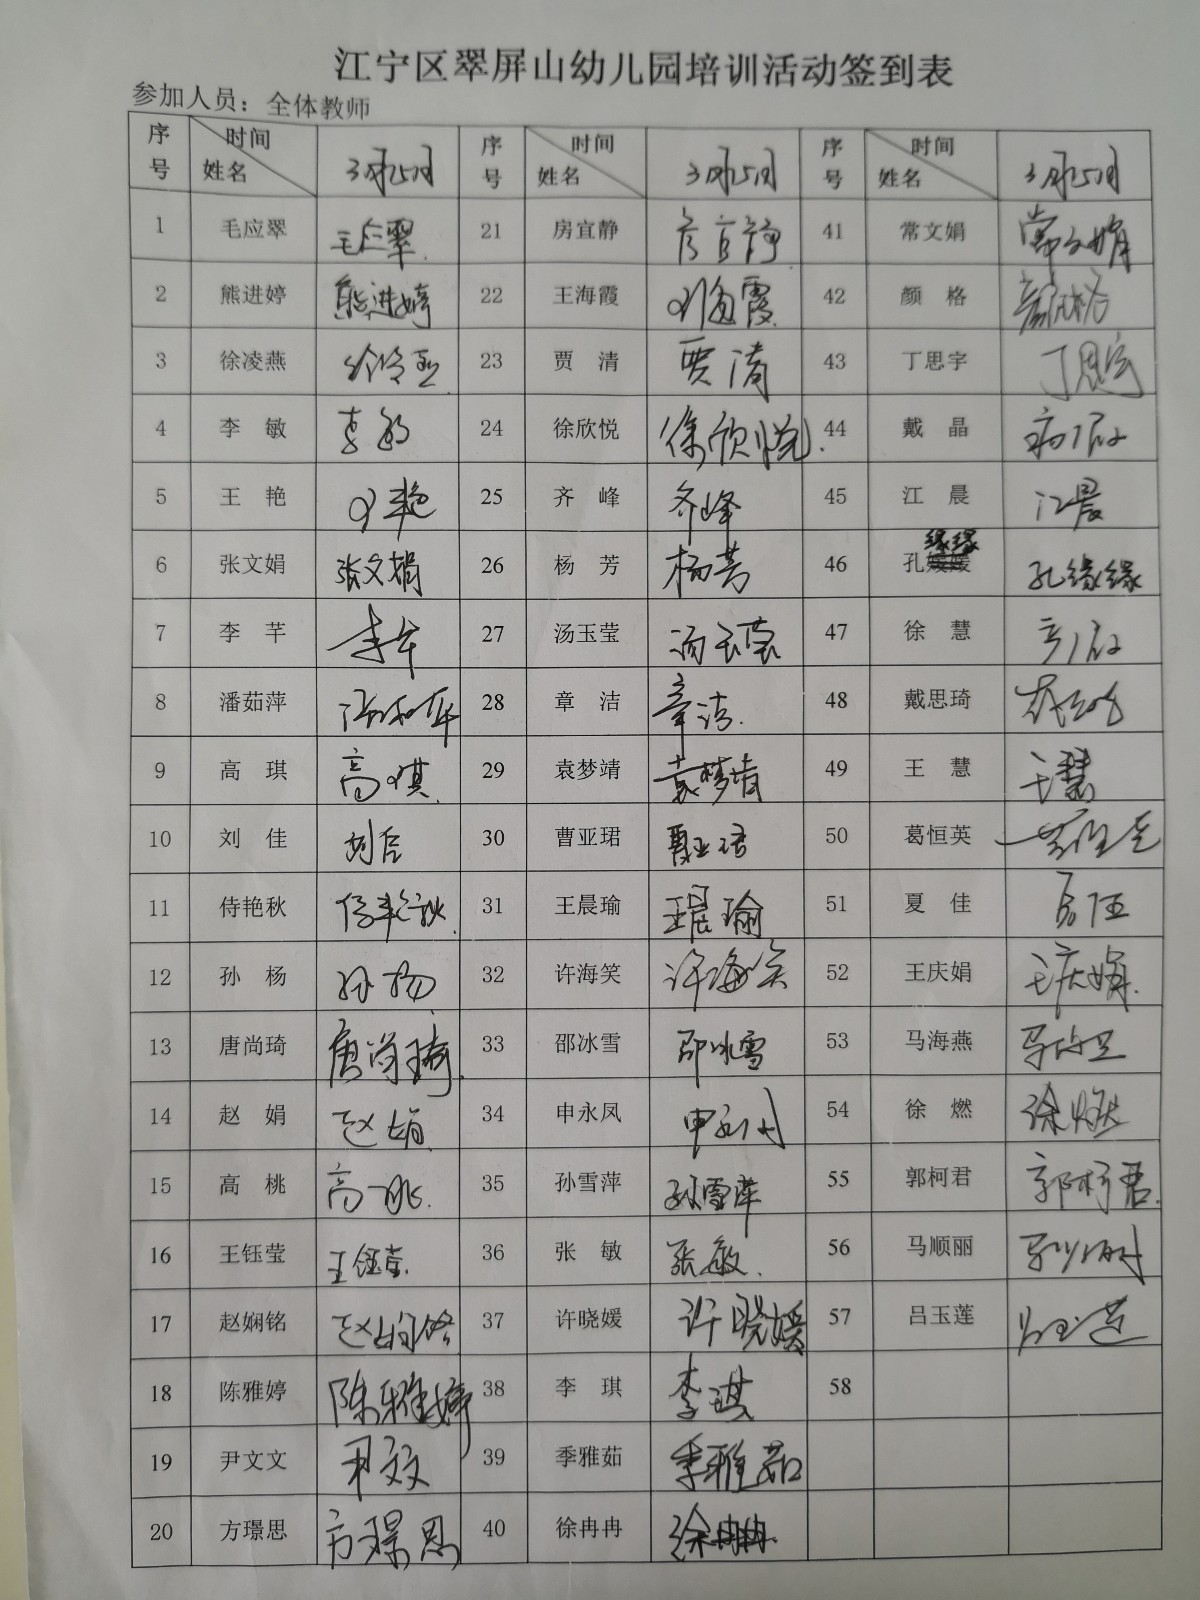 江宁区翠屏山幼儿园培训活动签到表
参加人员：全体教师
序号 时间 姓名 3月25日 序号 时间 姓名 3月25日 序号 时间 姓名 3月25日
1 毛应翠 毛应翠 21 房宜静 房宜静 41 常文娟 常文娟
2 熊进婷 熊进婷 22 王海霞 王海霞 42 颜格 颜格
3 徐凌燕 23 贾清 贾清 43 丁思宇 丁思宇
4 李敏 李敏 24 徐欣悦 徐欣悦 44 戴晶
5 王艳 王艳 25 齐峰 齐峰 45 江晨 江晨
6 张文娟 张文娟 26 杨芳 杨芳 46 孔缘缘 孔缘缘
7 李芊 李芊 27 汤玉莹 汤玉莹 47 徐慧
8 潘茹萍 潘茹萍 28 章洁 章洁 48 戴思琦
9 高琪 高琪 29 袁梦靖 袁梦靖 49 王慧 王慧
10 刘佳 刘佳 30 曹亚珺 曹亚珺 50 葛恒英
11 侍艳秋 侍艳秋 31 王晨瑜 王晨瑜 51 夏佳 夏佳
12 孙杨 孙杨 32 许海笑 许海笑 52 王庆娟 王庆娟
13 唐尚琦 唐尚琦 33 邵冰雪 邵冰雪 53 马海燕 马海燕
14 赵娟 赵娟 34 申永凤 申永凤 54 徐燃 徐燃
15 高桃 高桃 35 孙雪萍 孙雪萍 55 郭柯君 郭柯君
16 王钰莹 王钰莹 36 张敏 张敏 56 马顺丽 马顺丽
17 赵娴铭 赵娴铭 37 许晓媛 许晓媛 57 吕玉莲 吕玉莲
18 陈雅婷 陈雅婷 38 李琪 李琪 58
19 尹文文 尹文文 39 季雅茹 季雅茹
20 方璟思 方璟思 40 徐冉冉 徐冉冉